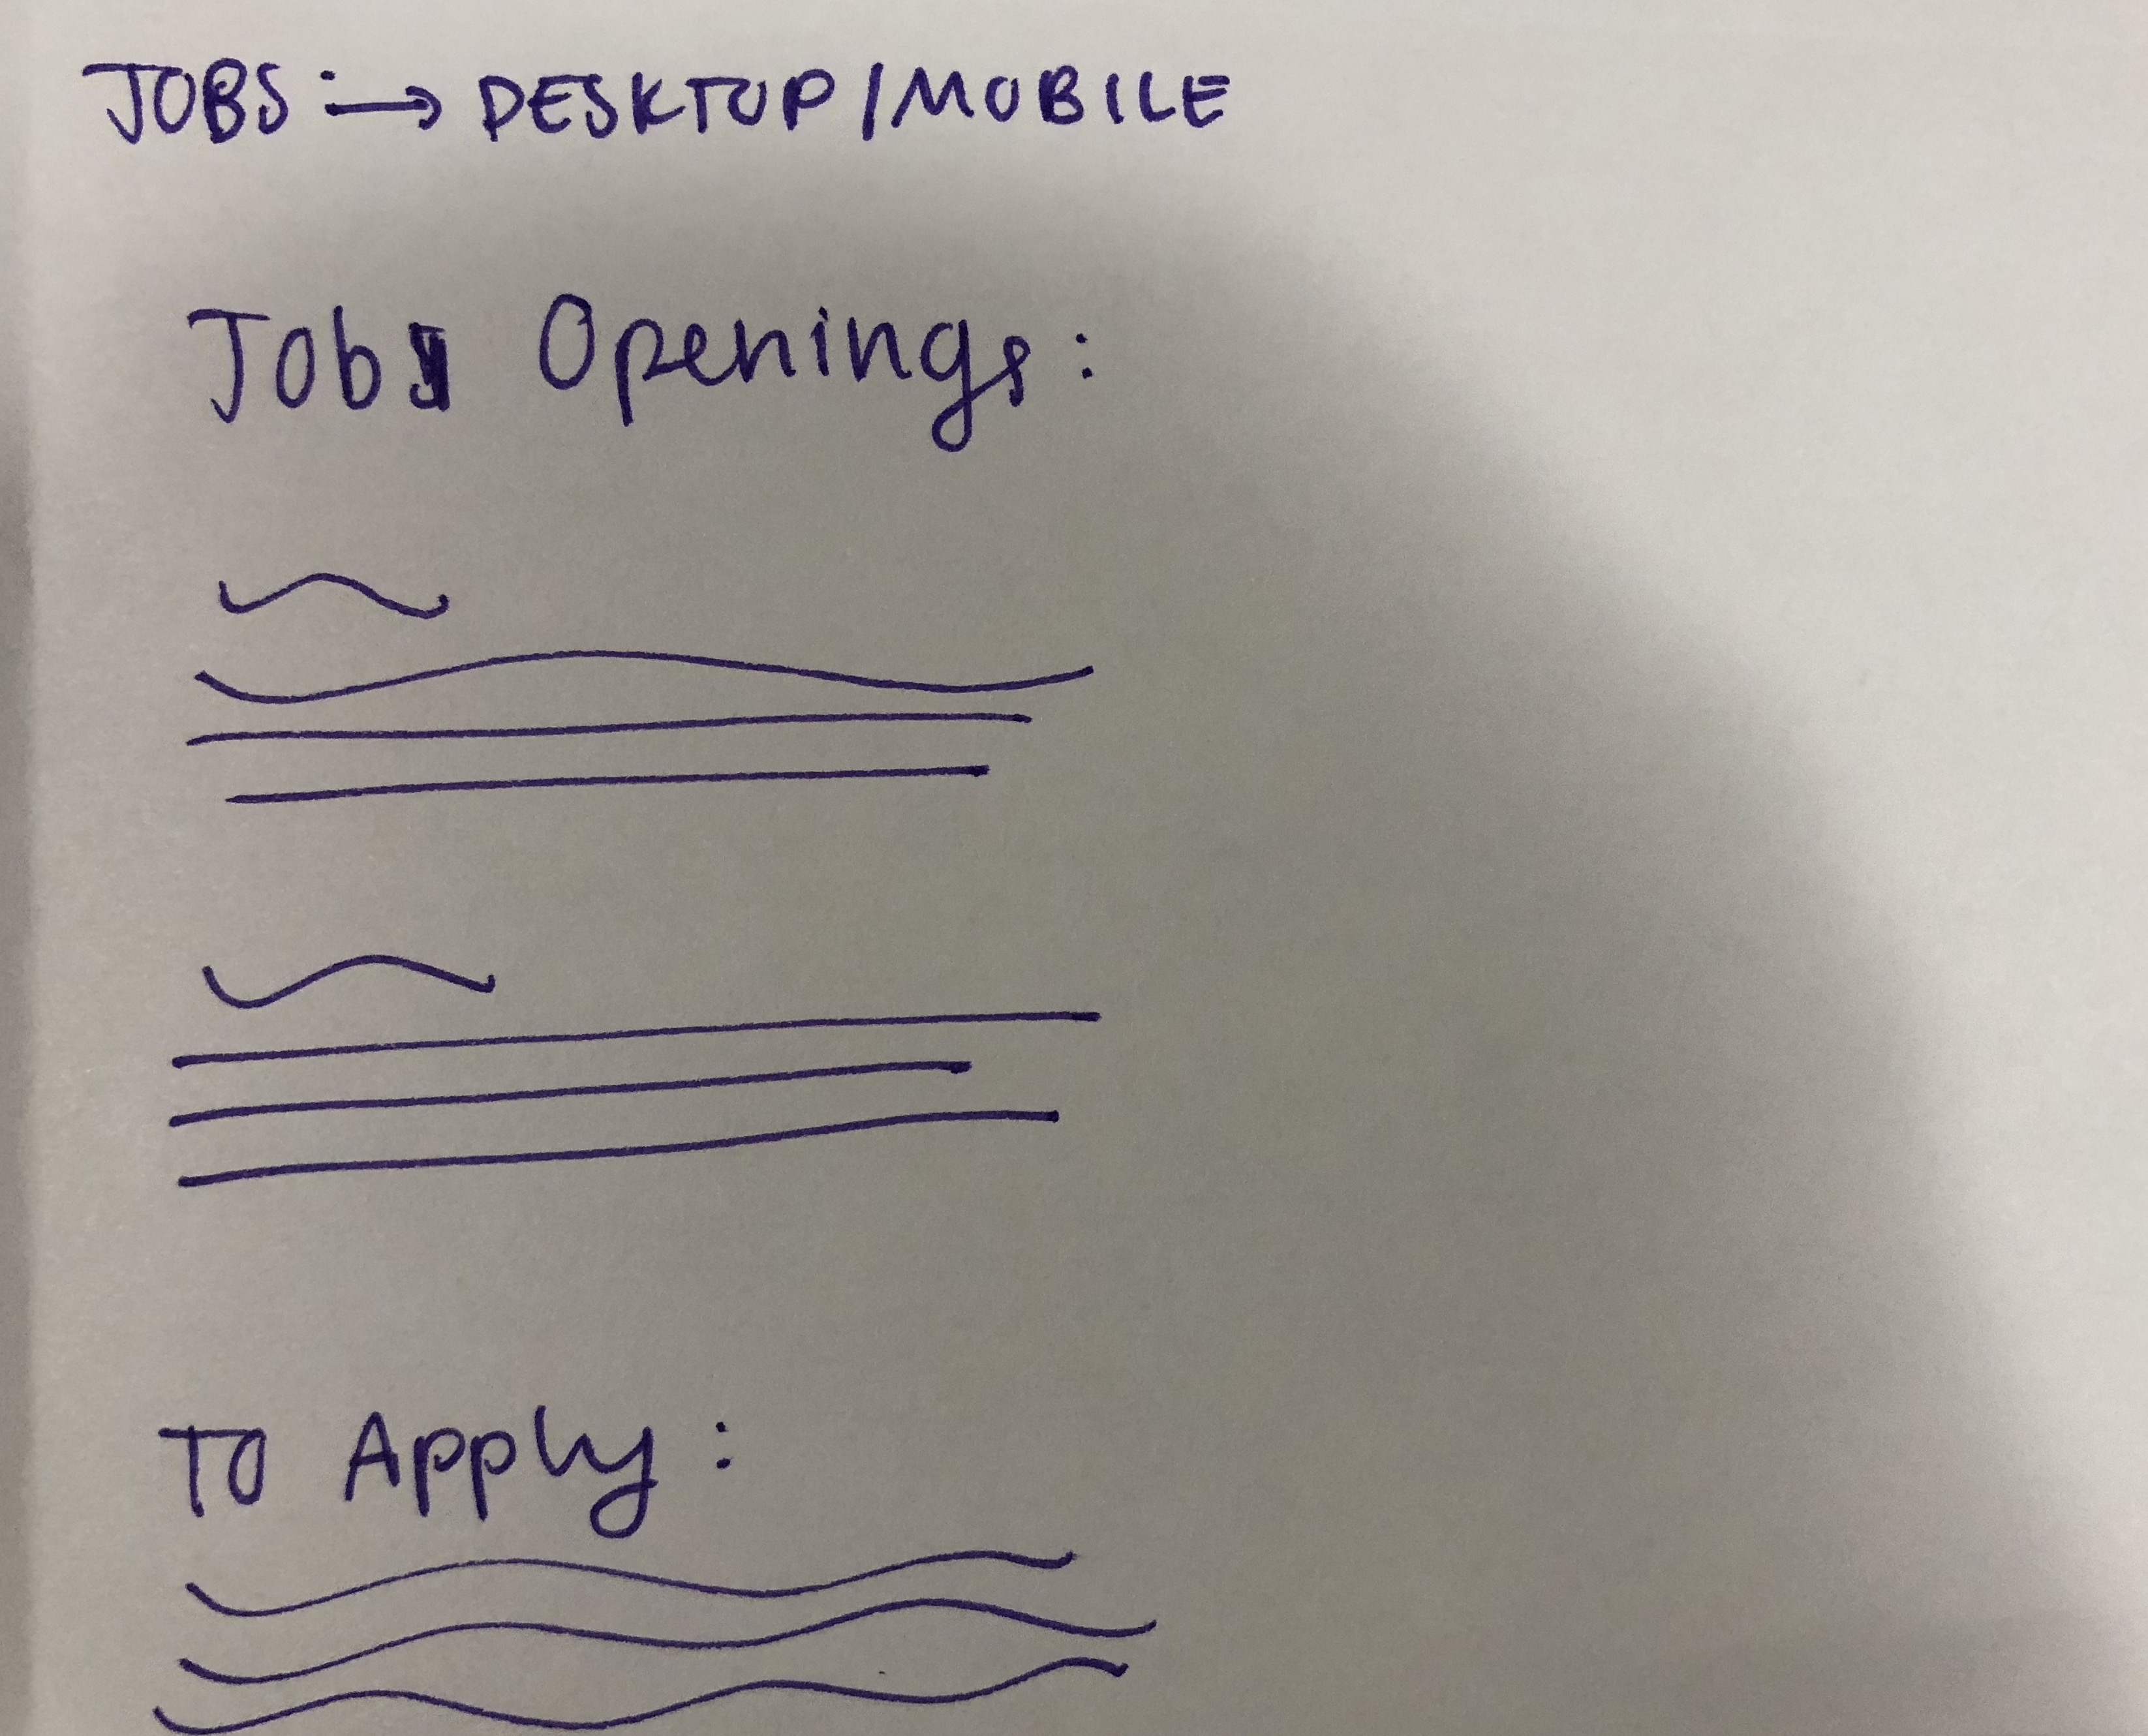 JOBS: → DESKTOP/MOBILE
Job Openings:
To Apply: